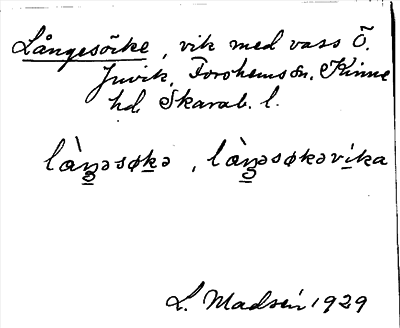 Långesörke, vik med vass Ö.
Juvik, Forshems sn. Kinne
hd. Skarab. l.
læ̀ŋəsøkə, læ̀ŋəsøkəvika
L. Madsén 1929